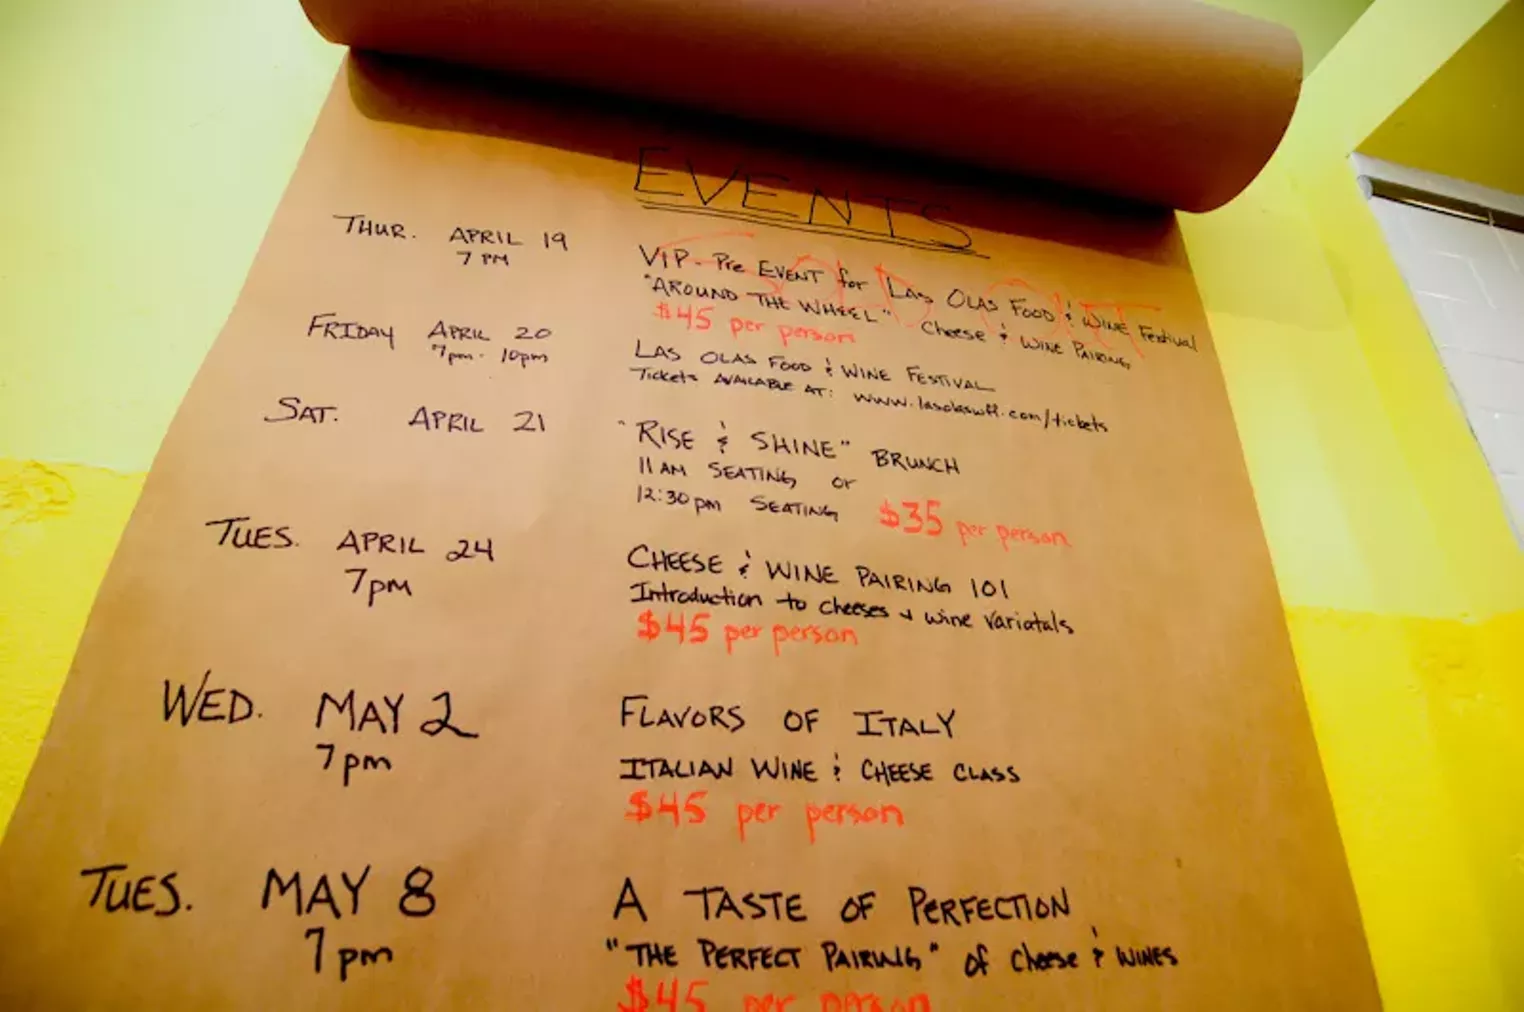 EVENTS
THUR. APRIL 19
7 PM
VIP - Pre EVENT for LAS OLAS FOOD & WINE Festival
"AROUND THE WHEEL" Cheese & WINE PAIRING
$45 per person
SOLD OUT
FRIDAY APRIL 20
7pm - 10pm
LAS OLAS FOOD & WINE FESTIVAL
Tickets AVAILABLE AT: www.lasolaswff.com/tickets
SAT. APRIL 21
"RISE & SHINE" BRUNCH
11 AM SEATING or
12:30pm SEATING $35 per person
TUES. APRIL 24
7pm
CHEESE & WINE PAIRING 101
Introduction to cheeses & wine variatals
$45 per person
WED. MAY 2
7pm
FLAVORS OF ITALY
ITALIAN WINE & CHEESE CLASS
$45 per person
TUES. MAY 8
7pm
A TASTE OF PERFECTION
"THE PERFECT PAIRING" of cheese & WINES
$45 per person